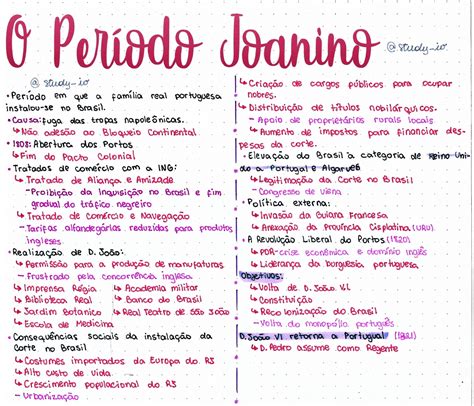 O Período Joanino
@study_io
@study_io
• Período em que a família real portuguesa
instalou-se no Brasil.
• Causa: fuga das tropas napoleônicas.
↳ Não adesão ao Bloqueio Continental
• 1808: Abertura dos Portos
↳ Fim do Pacto Colonial
• Tratados de comércio com a ING:
↳ Tratado de Aliança e Amizade
- Proibição da Inquisição no Brasil e fim
gradual do tráfico negreiro
↳ Tratado de Comércio e Navegação
- Tarifas alfandegárias reduzidas para produtos
ingleses
• Realização de D. João:
↳ Permissão para a produção de manufaturas
- Frustrado pela concorrência inglesa
↳ Imprensa Régia ↳ Academia militar
↳ Biblioteca Real ↳ Banco do Brasil
↳ Jardim Botanico ↳ Real Teatro de São João
↳ Escola de Medicina
• Consequências sociais da instalação da
Corte no Brasil
↳ Costumes importados da Europa do RJ
↳ Alto custo de vida
↳ Crescimento populacional do RJ
- Urbanização
↳ Criação de cargos públicos para ocupar
nobres.
↳ Distribuição de títulos nobiliárquicos.
- Apoio de proprietários rurais locais
↳ Aumento de impostos para financiar des-
pesas da corte.
• Elevação do Brasil à categoria de Reino Uni-
do a Portugal e Algarves
↳ Legitimação da Corte no Brasil
- Congresso de Viena
• Política externa:
↳ Invasão da Guiana Francesa
↳ Anexação da Província Cisplatina (URU)
• A Revolução Liberal do Portos (1820)
↳ POR-crise econômica e domínio inglês
↳ Liderança da burguesia portuguesa
Objetivos:
↳ Volta de D. João VI
↳ Constituição
↳ Recolonização do Brasil
- Volta do monopólio português
D. João VI retorna a Portugual (1821)
↳ D. Pedro assume como Regente